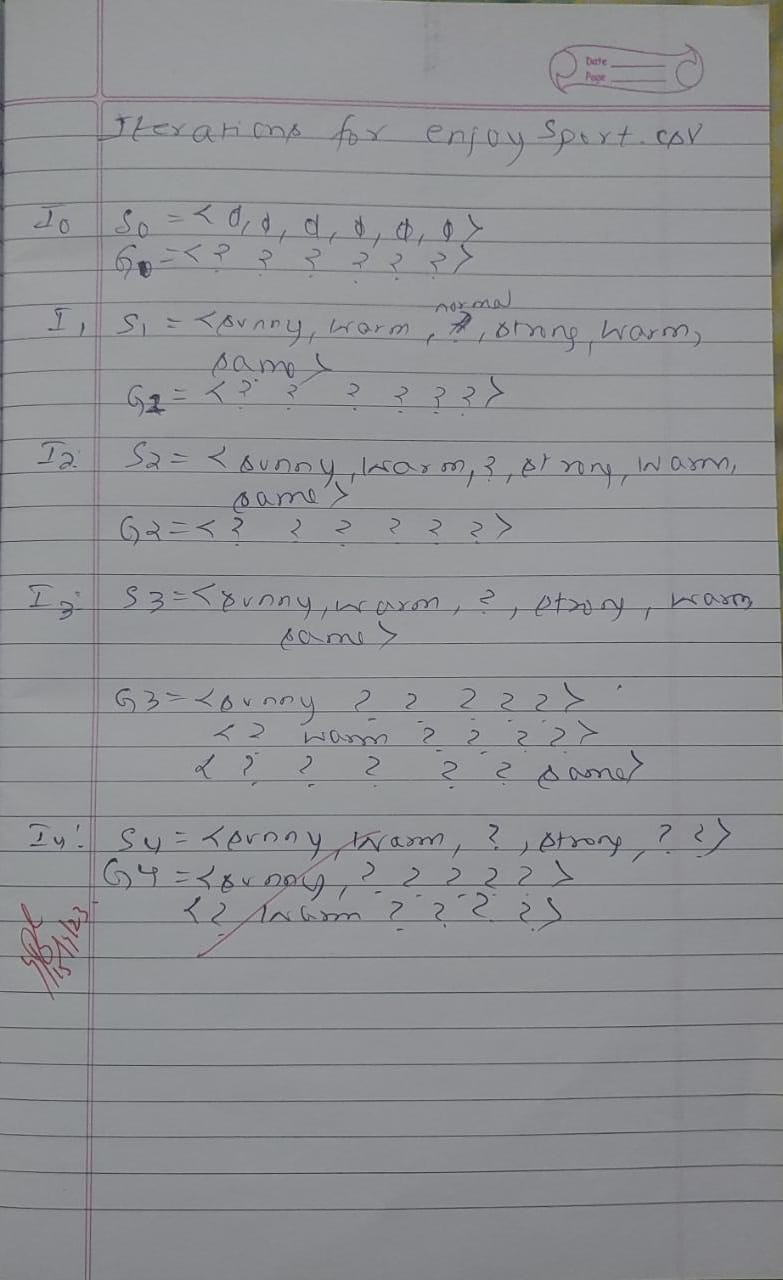 Date
Page
Iterations for enjoy Sport.csv
I0 S0 = < ϕ, ϕ, ϕ, ϕ, ϕ, ϕ >
G0 = < ? ? ? ? ? ? >
normal
I1 S1 = < sunny, warm, , strong, warm,
same >
G1 = < ? ? ? ? ? ? >
I2: S2 = < sunny, warm, ?, strong, warm,
same >
G2 = < ? ? ? ? ? ? >
I3: S3 = < sunny, warm, ?, strong, warm
same >
G3 = < sunny ? ? ? ? ? >
< ? warm ? ? ? ? >
< ? ? ? ? ? same >
I4: S4 = < sunny, warm, ?, strong, ? ? >
G4 = < sunny, ? ? ? ? ? >
< ? warm ? ? ? ? >
15/3/23